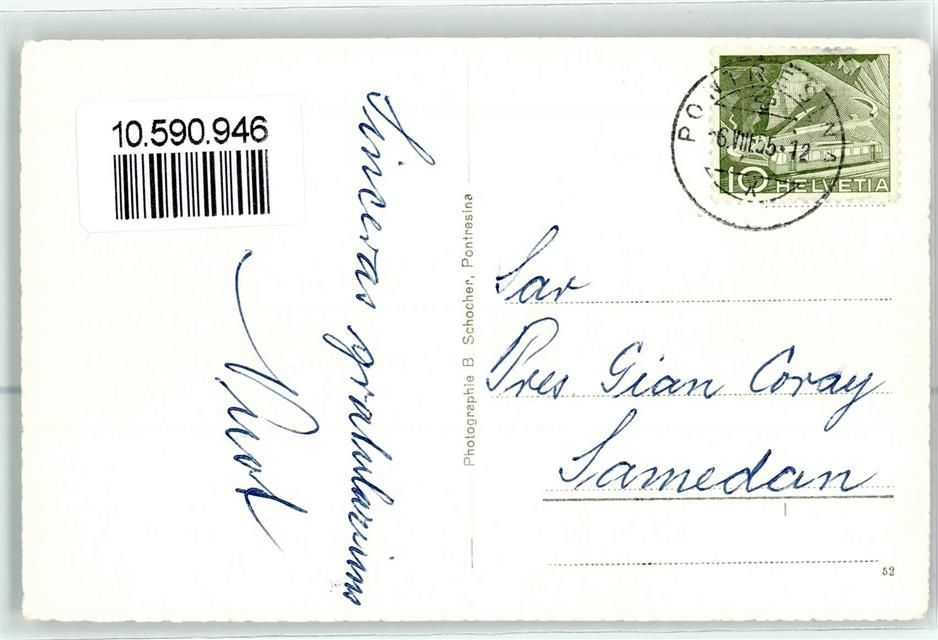 10.590.946
Sinceras gratulaziuns
Photographie B Schocher, Pontresina
PONTRESINA
-6.VIII.55-12
10 HELVETIA
Sar
Pres. Gian Coray
Samedan
52